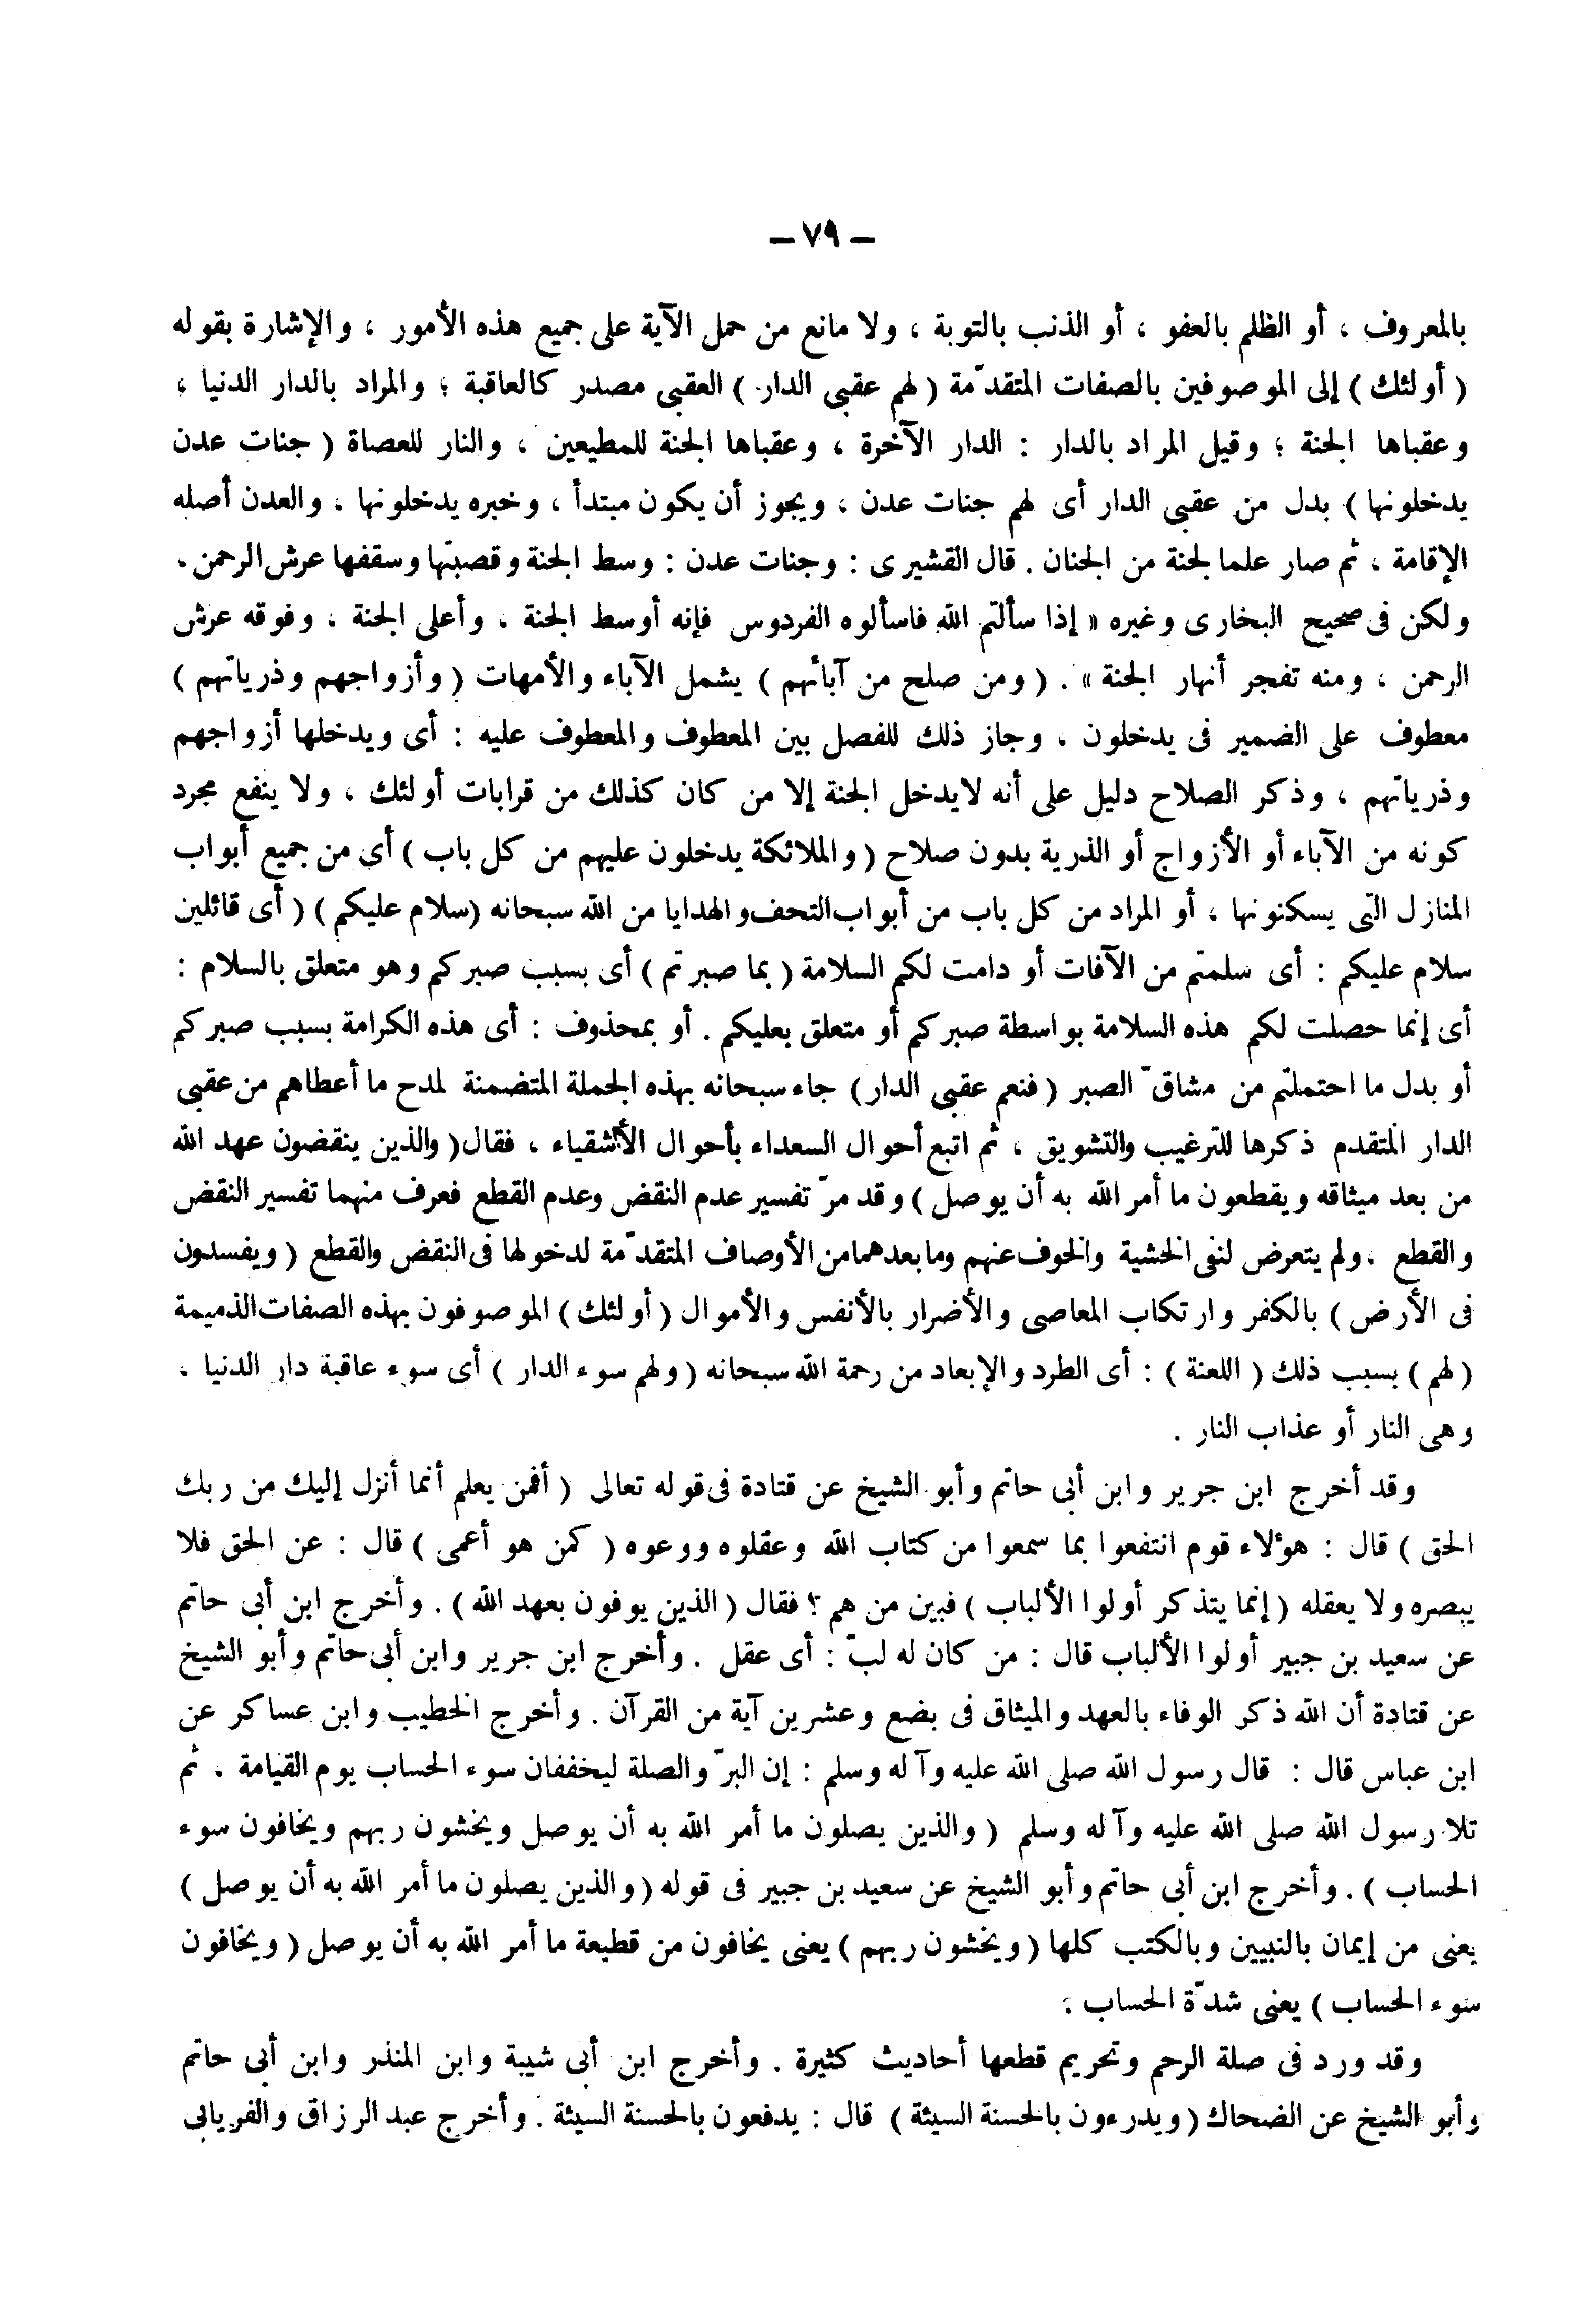 – ٧٩ –
بالمعروف ، أو الظلم بالعفو ، أو الذنب بالتوبة ، ولا مانع من حمل الآية على جميع هذه الأمور ، والإشارة بقوله
( أولئك ) إلى الموصوفين بالصفات المتقدّمة ( لهم عقبى الدار ) العقبى مصدر كالعاقبة ؛ والمراد بالدار الدنيا ،
وعقباها الجنة ؛ وقيل المراد بالدار : الدار الآخرة ، وعقباها الجنة للمطيعين ، والنار للعصاة ( جنات عدن
يدخلونها ) بدل من عقبى الدار أى لهم جنات عدن ، ويجوز أن يكون مبتدأ ، وخبره يدخلونها ، والعدن أصله
الإقامة ، ثم صار علما لجنة من الجنان . قال القشيرى : وجنات عدن : وسط الجنة وقصبتها وسقفها عرش الرحمن ،
ولكن فى صحيح البخارى وغيره « إذا سألتم الله فاسألوه الفردوس فإنه أوسط الجنة ، وأعلى الجنة ، وفوقه عرش
الرحمن ، ومنه تفجر أنهار الجنة » . ( ومن صلح من آبائهم ) يشمل الآباء والأمهات ( وأزواجهم وذرياتهم )
معطوف على الضمير فى يدخلون ، وجاز ذلك للفصل بين المعطوف والمعطوف عليه : أى ويدخلها أزواجهم
وذرياتهم ، وذكر الصلاح دليل على أنه لايدخل الجنة إلا من كان كذلك من قرابات أولئك ، ولا ينفع مجرد
كونه من الآباء أو الأزواج أو الذرية بدون صلاح ( والملائكة يدخلون عليهم من كل باب ) أى من جميع أبواب
المنازل التى يسكنونها ، أو المراد من كل باب من أبواب التحف والهدايا من الله سبحانه ( سلام عليكم ) ( أى قائلين
سلام عليكم : أى سلمتم من الآفات أو دامت لكم السلامة ( بما صبرتم ) أى بسبب صبركم وهو متعلق بالسلام :
أى إنما حصلت لكم هذه السلامة بواسطة صبركم أو متعلق بعليكم . أو بمحذوف : أى هذه الكرامة بسبب صبركم
أو بدل ما احتملتم من مشاقّ الصبر ( فنعم عقبى الدار ) جاء سبحانه بهذه الجملة المتضمنة لمدح ما أعطاهم من عقبى
الدار المتقدم ذكرها للترغيب والتشويق ، ثم اتبع أحوال السعداء بأحوال الأشقياء ، فقال ( والذين ينقضون عهد الله
من بعد ميثاقه ويقطعون ما أمر الله به أن يوصل ) وقد مرّ تفسير عدم النقض وعدم القطع فعرف منهما تفسير النقض
والقطع ، ولم يتعرض لنفى الخشية والخوف عنهم وما بعدهما من الأوصاف المتقدّمة لدخولها فى النقض والقطع ( ويفسدون
فى الأرض ) بالكفر وارتكاب المعاصى والأضرار بالأنفس والأموال ( أولئك ) الموصوفون بهذه الصفات الذميمة
( لهم ) بسبب ذلك ( اللعنة ) : أى الطرد والإبعاد من رحمة الله سبحانه ( ولهم سوء الدار ) أى سوء عاقبة دار الدنيا ،
وهى النار أو عذاب النار .
وقد أخرج ابن جرير وابن أبى حاتم وأبو الشيخ عن قتادة فى قوله تعالى ( أفمن يعلم أنما أنزل إليك من ربك
الحق ) قال : هؤلاء قوم انتفعوا بما سمعوا من كتاب الله وعقلوه ووعوه ( كمن هو أعمى ) قال : عن الحق فلا
يبصره ولا يعقله ( إنما يتذكر أولوا الألباب ) فبين من هم ؟ فقال ( الذين يوفون بعهد الله ) . وأخرج ابن أبى حاتم
عن سعيد بن جبير أولوا الألباب قال : من كان له لبّ : أى عقل . وأخرج ابن جرير وابن أبى حاتم وأبو الشيخ
عن قتادة أن الله ذكر الوفاء بالعهد والميثاق فى بضع وعشرين آية من القرآن . وأخرج الخطيب وابن عساكر عن
ابن عباس قال : قال رسول الله صلى الله عليه وآله وسلم : إن البرّ والصلة ليخففان سوء الحساب يوم القيامة ، ثم
تلا رسول الله صلى الله عليه وآله وسلم ( والذين يصلون ما أمر الله به أن يوصل ويخشون ربهم ويخافون سوء
الحساب ) . وأخرج ابن أبى حاتم وأبو الشيخ عن سعيد بن جبير فى قوله ( والذين يصلون ما أمر الله به أن يوصل )
يعنى من إيمان بالنبيين وبالكتب كلها ( ويخشون ربهم ) يعنى يخافون من قطيعة ما أمر الله به أن يوصل ( ويخافون
سوء الحساب ) يعنى شدّة الحساب :
وقد ورد فى صلة الرحم وتحريم قطعها أحاديث كثيرة . وأخرج ابن أبى شيبة وابن المنذر وابن أبى حاتم
وأبو الشيخ عن الضحاك ( ويدرءون بالحسنة السيئة ) قال : يدفعون بالحسنة السيئة . وأخرج عبد الرزاق والفريابى